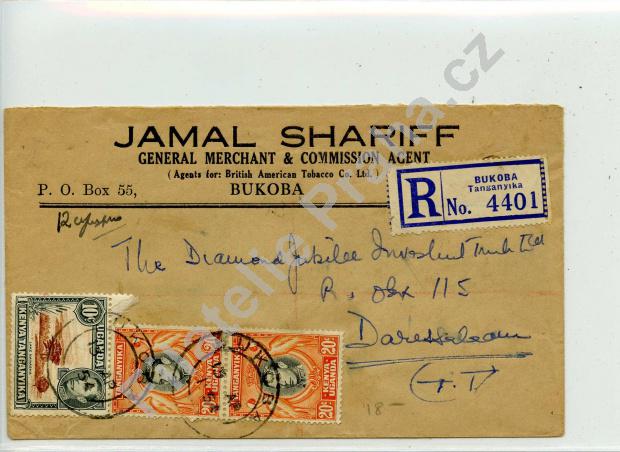 JAMAL SHARIFF
GENERAL MERCHANT & COMMISSION AGENT
( Agents for: British American Tobacco Co. Ltd. )
P. O. Box 55,
BUKOBA
R
BUKOBA
Tanganyika
No. 4401
The Diamond Jubilee Investment Trust Ltd
P. O Box 115
Daressalaam
T.T
10c
UGANDA
KENYA TANGANYIKA
TANGANYIKA
20c
TANGANYIKA
20c
KENYA
UGANDA
20c
BUKOBA
BUKOBA
18-
Filatelie Praha.cz